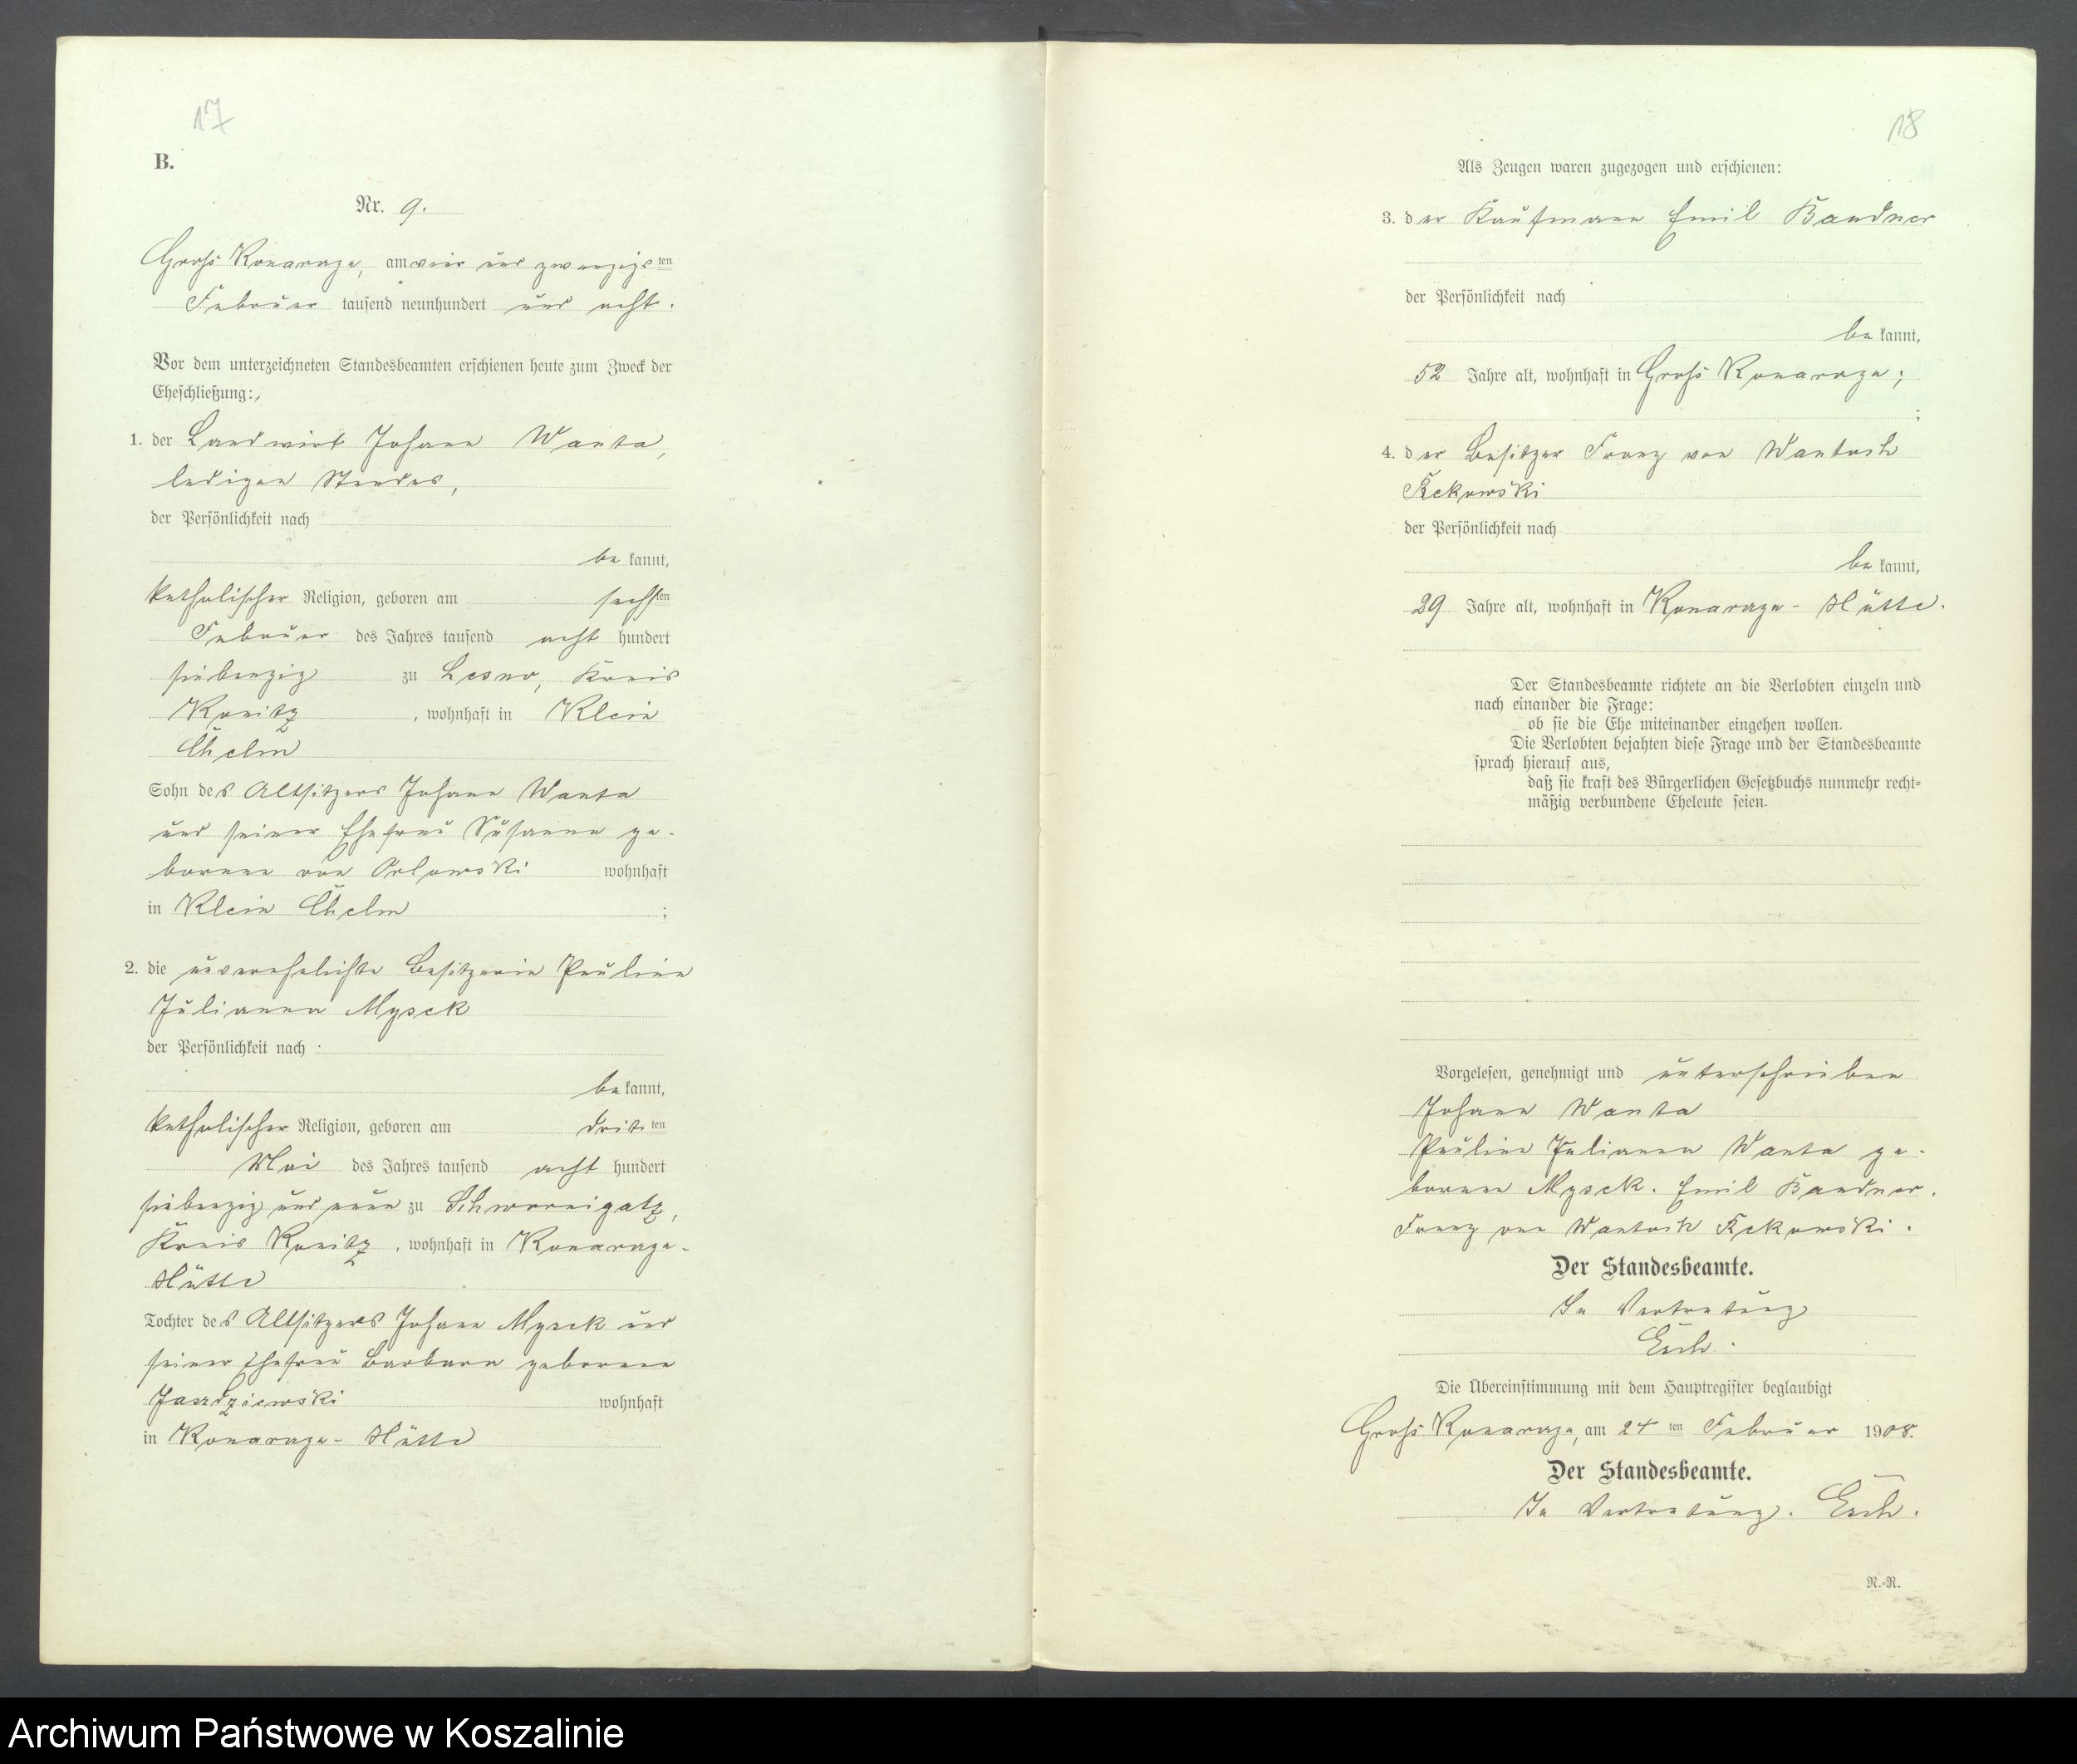 17
B.
Nr. 9.
Groß Konarzyn, am vier und zwanzigsten
Februar tausend neunhundert und acht.
Vor dem unterzeichneten Standesbeamten erschienen heute zum Zweck der
Eheschließung:
1. der Landwirt Johann Wanta,
ledigen Standes,
der Persönlichkeit nach
be kannt,
katholischer Religion, geboren am sechsten
Februar des Jahres tausend acht hundert
siebenzig zu Lesno, Kreis
Konitz, wohnhaft in Klein
Chelm
Sohn des Altsitzers Johann Wanta
und seiner Ehefrau Susanna ge-
borenen von Orlowski wohnhaft
in Klein Chelm ;
2. die unverehelichte Besitzerin Pauline
Julianna Mysck
der Persönlichkeit nach
be kannt,
katholischer Religion, geboren am dritten
Mai des Jahres tausend acht hundert
siebenzig und neun zu Schwornigatz,
Kreis Konitz, wohnhaft in Konarzyn-
Hütte
Tochter des Altsitzers Johann Mysck und
seiner Ehefrau Barbara geborenen
wohnhaft
in Konarzyn-Hütte
18
Als Zeugen waren zugezogen und erschienen:
3. der Kaufmann Emil Bandner
der Persönlichkeit nach
be kannt,
52 Jahre alt, wohnhaft in Groß Konarzyn;
;
4. der Besitzer Franz von Wantoch
Rekowski
der Persönlichkeit nach
be kannt,
29 Jahre alt, wohnhaft in Konarzyn-Hütte.
Der Standesbeamte richtete an die Verlobten einzeln und
nach einander die Frage:
ob sie die Ehe miteinander eingehen wollen.
Die Verlobten bejahten diese Frage und der Standesbeamte
sprach hierauf aus,
daß sie kraft des Bürgerlichen Gesetzbuchs nunmehr recht-
mäßig verbundene Eheleute seien.
Vorgelesen, genehmigt und unterschrieben
Johann Wanta
Pauline Julianna Wanta ge-
borenen Mysck. Emil Bandner.
Franz von Wantoch Rekowski.
Der Standesbeamte.
In Vertretung
Esch.
Die Übereinstimmung mit dem Hauptregister beglaubigt
Groß Konarzyn, am 24 ten Februar 1908.
Der Standesbeamte.
In Vertretung. Esch.
N.-R.
Archiwum Państwowe w Koszalinie